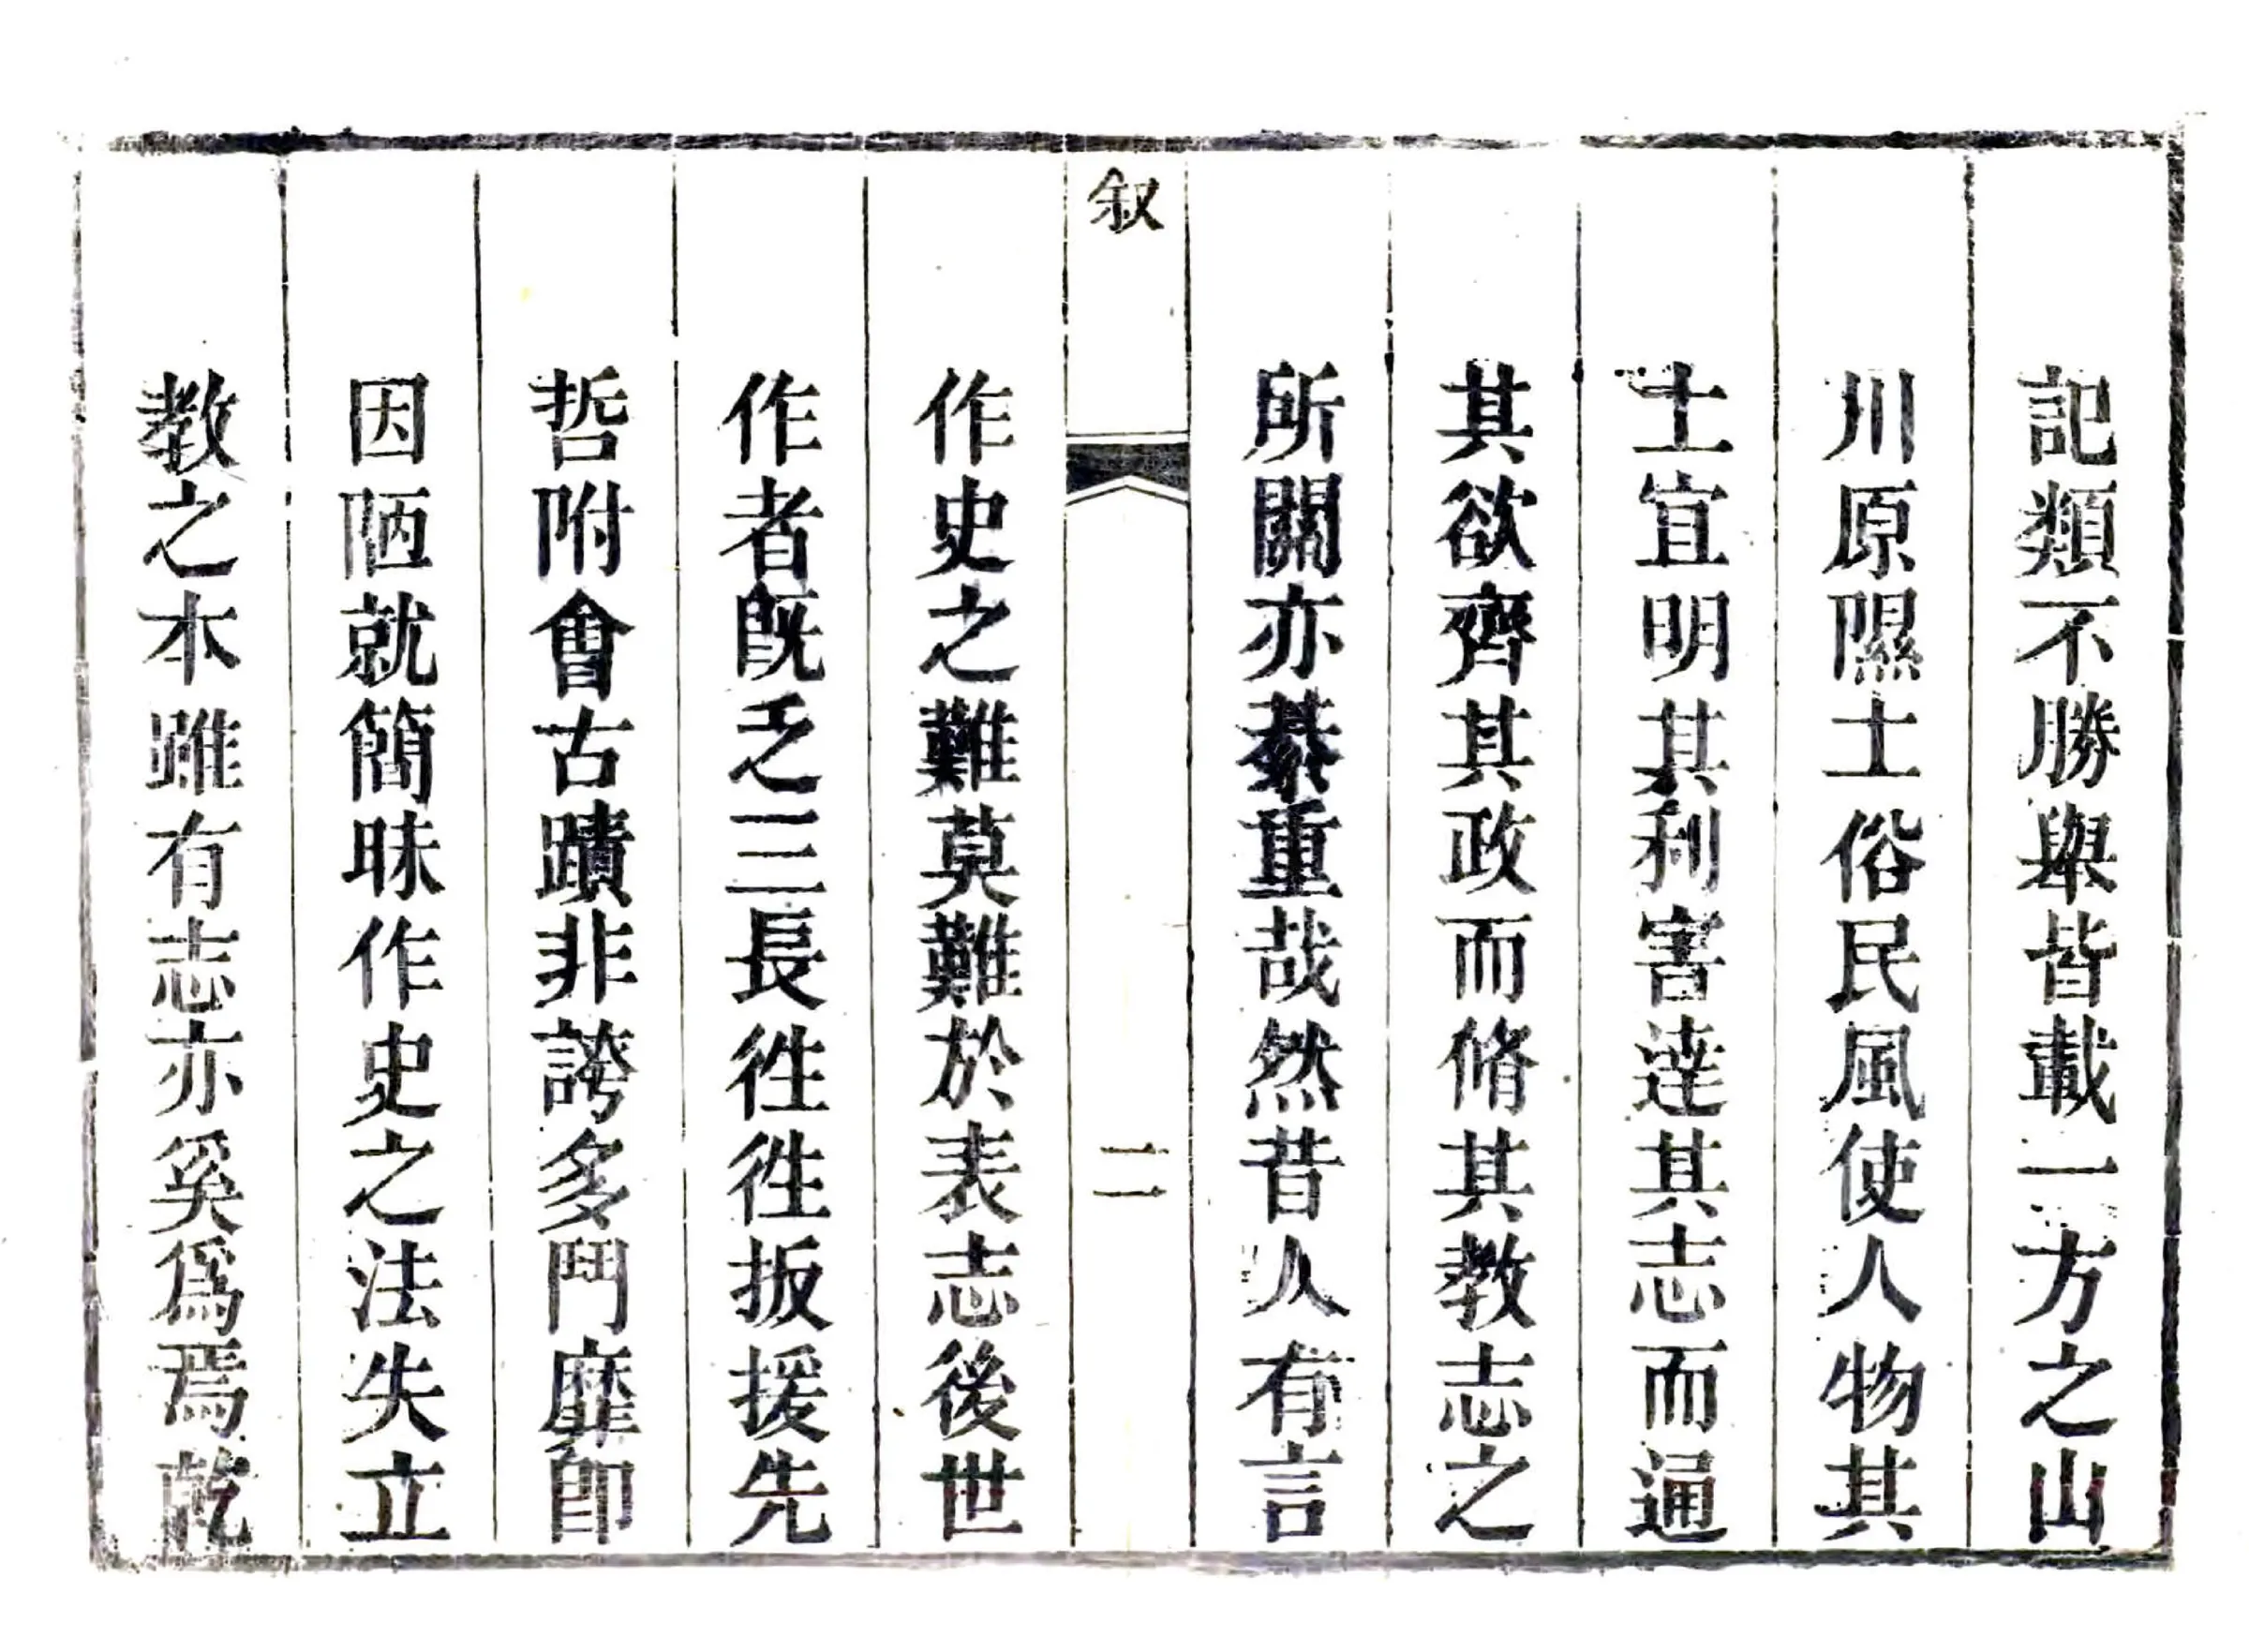 記類不勝舉皆載一方之山
川原隰土俗民風使人物其
土宜明其利害達其志而通
其欲齊其政而脩其教志之
所關亦綦重哉然昔人有言
叙
二
作史之難莫難於表志後世
作者既乏三長徃徃扳援先
哲附會古蹟非誇多鬥靡卽
因陋就簡昧作史之法失立
教之本雖有志亦奚爲焉乾